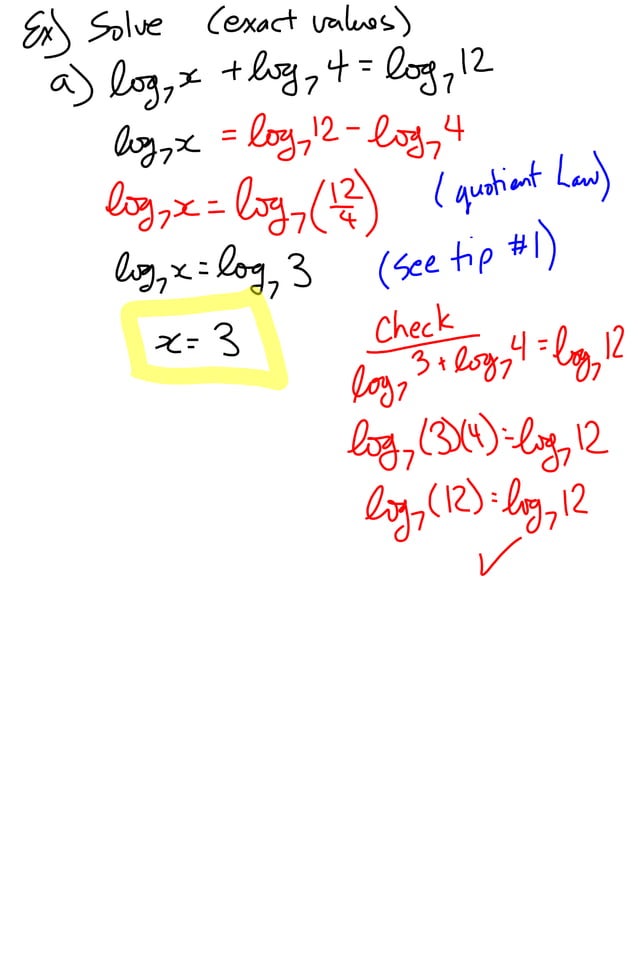 Ex) Solve (exact values)
a) log₇x + log₇4 = log₇12
log₇x = log₇12 - log₇4
log₇x = log₇(12/4) (quotient Law)
log₇x = log₇3 (see tip #1)
x = 3
Check
log₇3 + log₇4 = log₇12
log₇(3)(4) = log₇12
log₇(12) = log₇12
✓